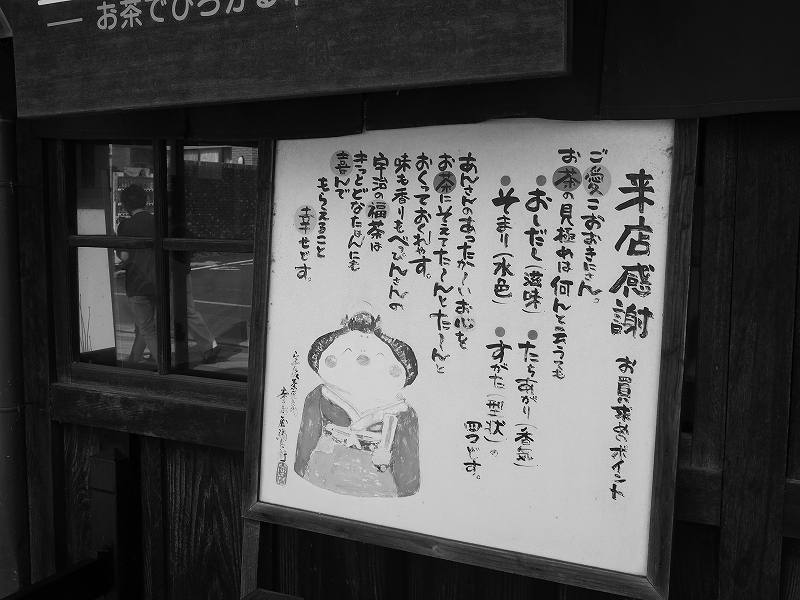 お茶でひろがる
来店感謝
お買い求めのポイント
ご愛こおおきにさん。
お茶の見極めは何んと云うても
●おしだし(滋味)
●たちあがり(香気)
●そまり(水色)
●すがた(型状)の
四つどす。
あんさんのあったか〜いお心を
お茶にそえてた〜んとた〜んと
おくっておくれやす。
味も香りもべっぴんさんの
宇治の福茶は
きっとどなたはんにも
喜んで
もらえること
幸せどす。